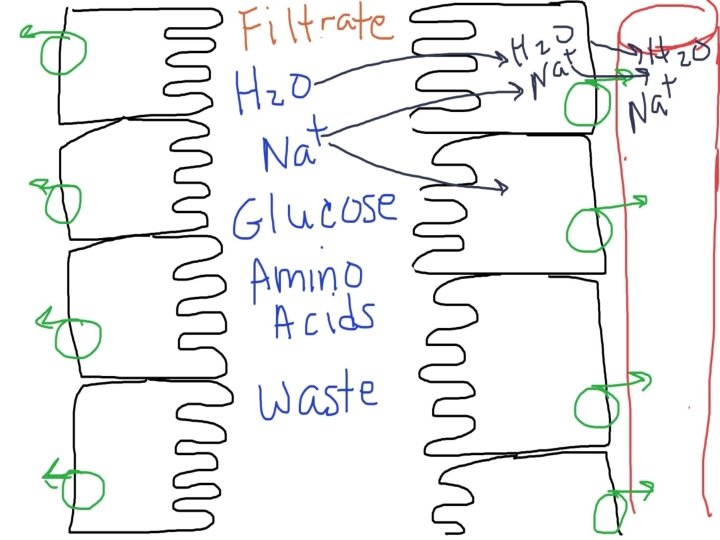 Filtrate
H2O
Na+
Glucose
Amino
Acids
Waste
H2O
Na+
H2O
Na+